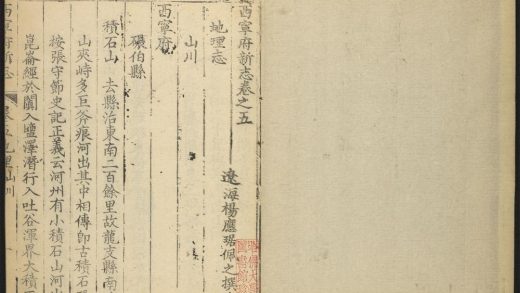 西寧府新志卷之五
遼海楊應琚佩之撰
地理志
山川
西寧府
碾伯縣
積石山 去縣治東南二百餘里故龍支縣南
山夾峙多巨斧痕河出其中相傳即古積石
按張守節史記正義云河州有小積石山河
崑崙經於闐入鹽澤潛行入吐谷渾界大積
西寧府新志
地理 山川